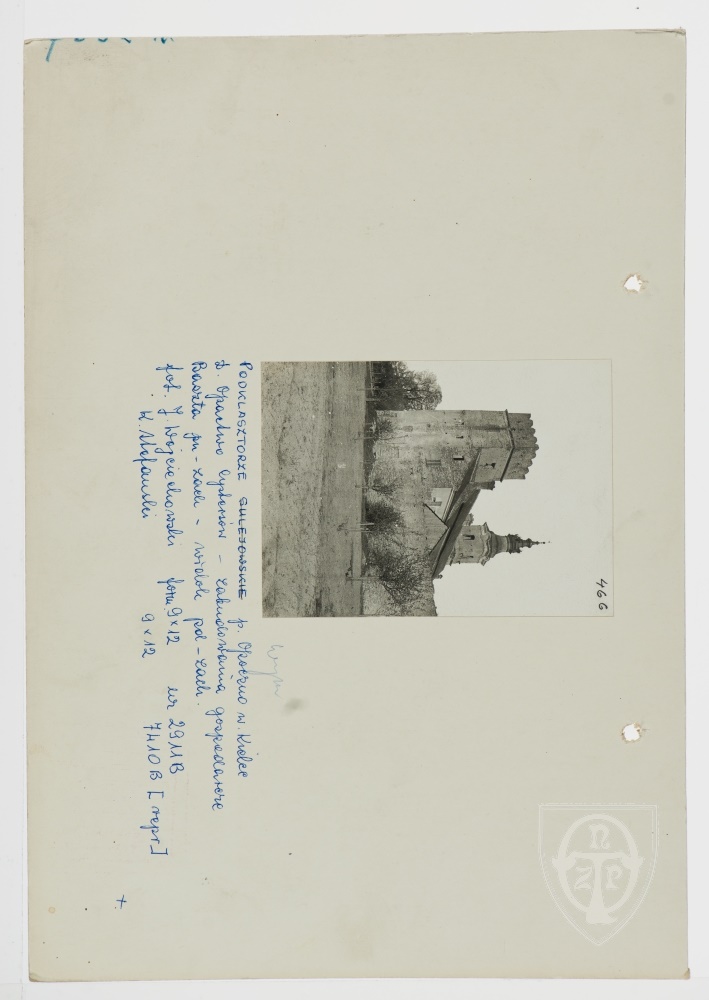 466
PODKLASZTORZE SULEJOWSKIE p. Opoczno w. Kielce
b. Opactwo Cystersów - zabudowania gospodarcze
Baszta pn-zach - widok pd-zach.
fot. J. Wojciechowski form. 9x12 nr 2911B
K. Stefański 9x12 7410B [repr]
+
n
Z P